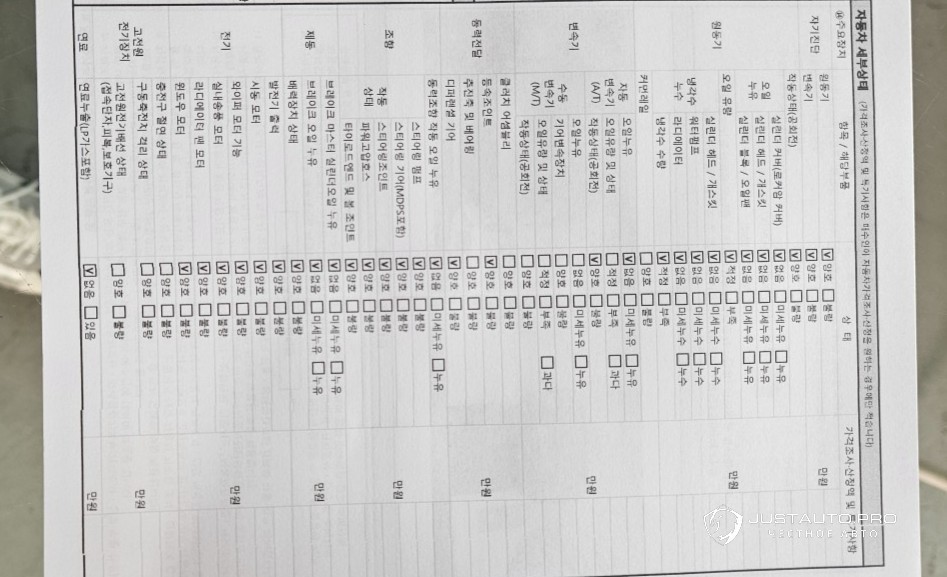 자동차 세부상태 (가격조사·산정액 및 특기사항은 매수인이 자동차가격조사·산정을 원하는 경우에만 적습니다)
⑭주요장치 항목 / 해당부품 상 태 가격조사·산정액 및 특기사항
자기진단 원동기 [V] 양호 [ ] 불량 만원
변속기 [V] 양호 [ ] 불량
원동기 작동상태(공회전) [V] 양호 [ ] 불량 만원
오일 누유 실린더 커버(로커암 커버) [V] 없음 [ ] 미세누유 [ ] 누유
실린더 헤드 / 개스킷 [V] 없음 [ ] 미세누유 [ ] 누유
실린더 블록 / 오일팬 [V] 없음 [ ] 미세누유 [ ] 누유
오일 유량 [V] 적정 [ ] 부족
냉각수 누수 실린더 헤드 / 개스킷 [V] 없음 [ ] 미세누수 [ ] 누수
워터펌프 [V] 없음 [ ] 미세누수 [ ] 누수
라디에이터 [V] 없음 [ ] 미세누수 [ ] 누수
냉각수 수량 [V] 적정 [ ] 부족
커먼레일 [ ] 양호 [ ] 불량
변속기 자동 변속기 (A/T) 오일누유 [V] 없음 [ ] 미세누유 [ ] 누유 만원
오일유량 및 상태 [ ] 적정 [ ] 부족 [ ] 과다
작동상태(공회전) [V] 양호 [ ] 불량
수동 변속기 (M/T) 오일누유 [ ] 없음 [ ] 미세누유 [ ] 누유
기어변속장치 [ ] 양호 [ ] 불량
오일유량 및 상태 [ ] 적정 [ ] 부족 [ ] 과다
작동상태(공회전) [ ] 양호 [ ] 불량
동력전달 클러치 어셈블리 [ ] 양호 [ ] 불량 만원
등속조인트 [V] 양호 [ ] 불량
추진축 및 베어링 [ ] 양호 [ ] 불량
디퍼렌셜 기어 [V] 양호 [ ] 불량
조향 동력조향 작동 오일 누유 [V] 없음 [ ] 미세누유 [ ] 누유 만원
작동 상태 스티어링 펌프 [V] 양호 [ ] 불량
스티어링 기어(MDPS포함) [V] 양호 [ ] 불량
스티어링조인트 [V] 양호 [ ] 불량
파워고압호스 [V] 양호 [ ] 불량
타이로드엔드 및 볼 조인트 [V] 양호 [ ] 불량
제동 브레이크 마스터 실린더오일 누유 [V] 없음 [ ] 미세누유 [ ] 누유 만원
브레이크 오일 누유 [V] 없음 [ ] 미세누유 [ ] 누유
배력장치 상태 [V] 양호 [ ] 불량
전기 발전기 출력 [V] 양호 [ ] 불량 만원
시동 모터 [V] 양호 [ ] 불량
와이퍼 모터 기능 [V] 양호 [ ] 불량
실내송풍 모터 [V] 양호 [ ] 불량
라디에이터 팬 모터 [V] 양호 [ ] 불량
윈도우 모터 [V] 양호 [ ] 불량
고전원 전기장치 충전구 절연 상태 [ ] 양호 [ ] 불량 만원
구동축전지 격리 상태 [ ] 양호 [ ] 불량
고전원전기배선 상태 (접속단자,피복,보호기구) [ ] 양호 [ ] 불량
연료 연료누출(LP가스포함) [V] 없음 [ ] 있음 만원
JUSTAUTO.PRO
ЧЕСТНЫЕ АВТО